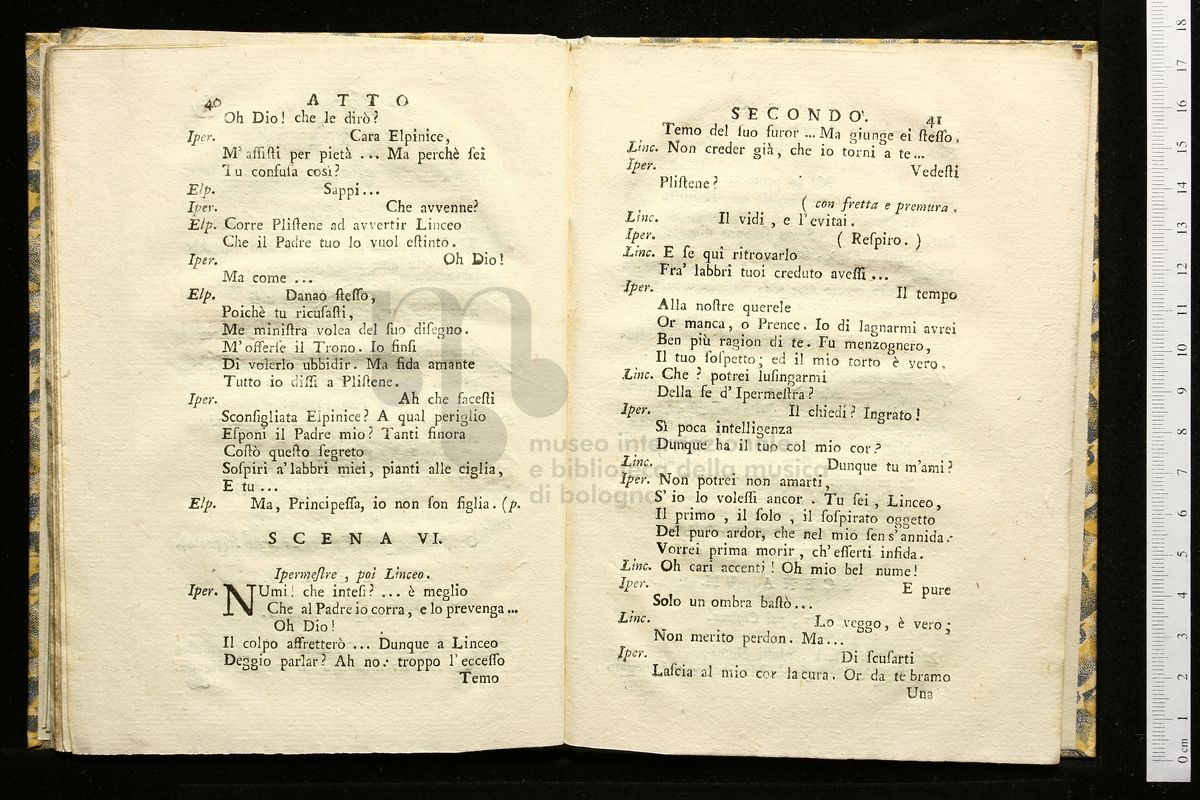 40 ATTO
Oh Dio! che le dirò?
Iper. Cara Elpinice,
M'aſſiſti per pietà ... Ma perchè ſei
Tu confuſa così?
Elp. Sappi...
Iper. Che avvenne?
Elp. Corre Pliſtene ad avvertir Linceo
Che il Padre tuo lo vuol eſtinto.
Iper. Oh Dio!
Ma come ...
Elp. Danao ſteſſo,
Poichè tu ricuſaſti,
Me miniſtra volea del ſuo diſegno.
M'offerſe il Trono. Io finſi
Di volerlo ubbidir. Ma fida amante
Tutto io diſſi a Pliſtene.
Iper. Ah che faceſti
Sconſigliata Elpinice? A qual periglio
Eſponi il Padre mio? Tanti finora
Coſtò queſto ſegreto
Soſpiri a' labbri miei, pianti alle ciglia,
E tu ...
Elp. Ma, Principeſſa, io non ſon figlia. (p.
SCENA VI.
Ipermeſtre, poi Linceo.
Iper. NUmi! che inteſi? ... è meglio
Che al Padre io corra, e lo prevenga...
Oh Dio!
Il colpo affretterò ... Dunque a Linceo
Deggio parlar? Ah no: troppo l'ecceſſo
Temo
SECONDO. 41
Temo del ſuo furor ... Ma giunge ei ſteſſo.
Linc. Non creder già, che io torni a te...
Iper. Vedeſti
Pliſtene?
( con fretta e premura.
Linc. Il vidi, e l'evitai.
Iper. ( Reſpiro. )
Linc. E ſe qui ritrovarlo
Fra' labbri tuoi creduto aveſſi ...
Iper. Il tempo
Alla noſtre querele
Or manca, o Prence. Io di lagnarmi avrei
Ben più ragion di te. Fu menzognero,
Il tuo ſoſpetto; ed il mio torto è vero.
Linc. Che ? potrei luſingarmi
Della fe d'Ipermeſtra?
Iper. Il chiedi? Ingrato!
Sì poca intelligenza
Dunque ha il tuo col mio cor?
Linc. Dunque tu m'ami?
Iper. Non potrei non amarti,
S'io lo voleſſi ancor. Tu ſei, Linceo,
Il primo, il ſolo, il ſoſpirato oggetto
Del puro ardor, che nel mio ſen s'annida:
Vorrei prima morir, ch'eſſerti infida.
Linc. Oh cari accenti! Oh mio bel nume!
Iper. E pure
Solo un ombra baſtò...
Linc. Lo veggo, è vero;
Non merito perdon. Ma...
Iper. Di ſcuſarti
Laſcia al mio cor la cura. Or da te bramo
Una
museo internazionale
e biblioteca della musica
di bologna
0 cm 1 2 3 4 5 6 7 8 9 10 11 12 13 14 15 16 17 18